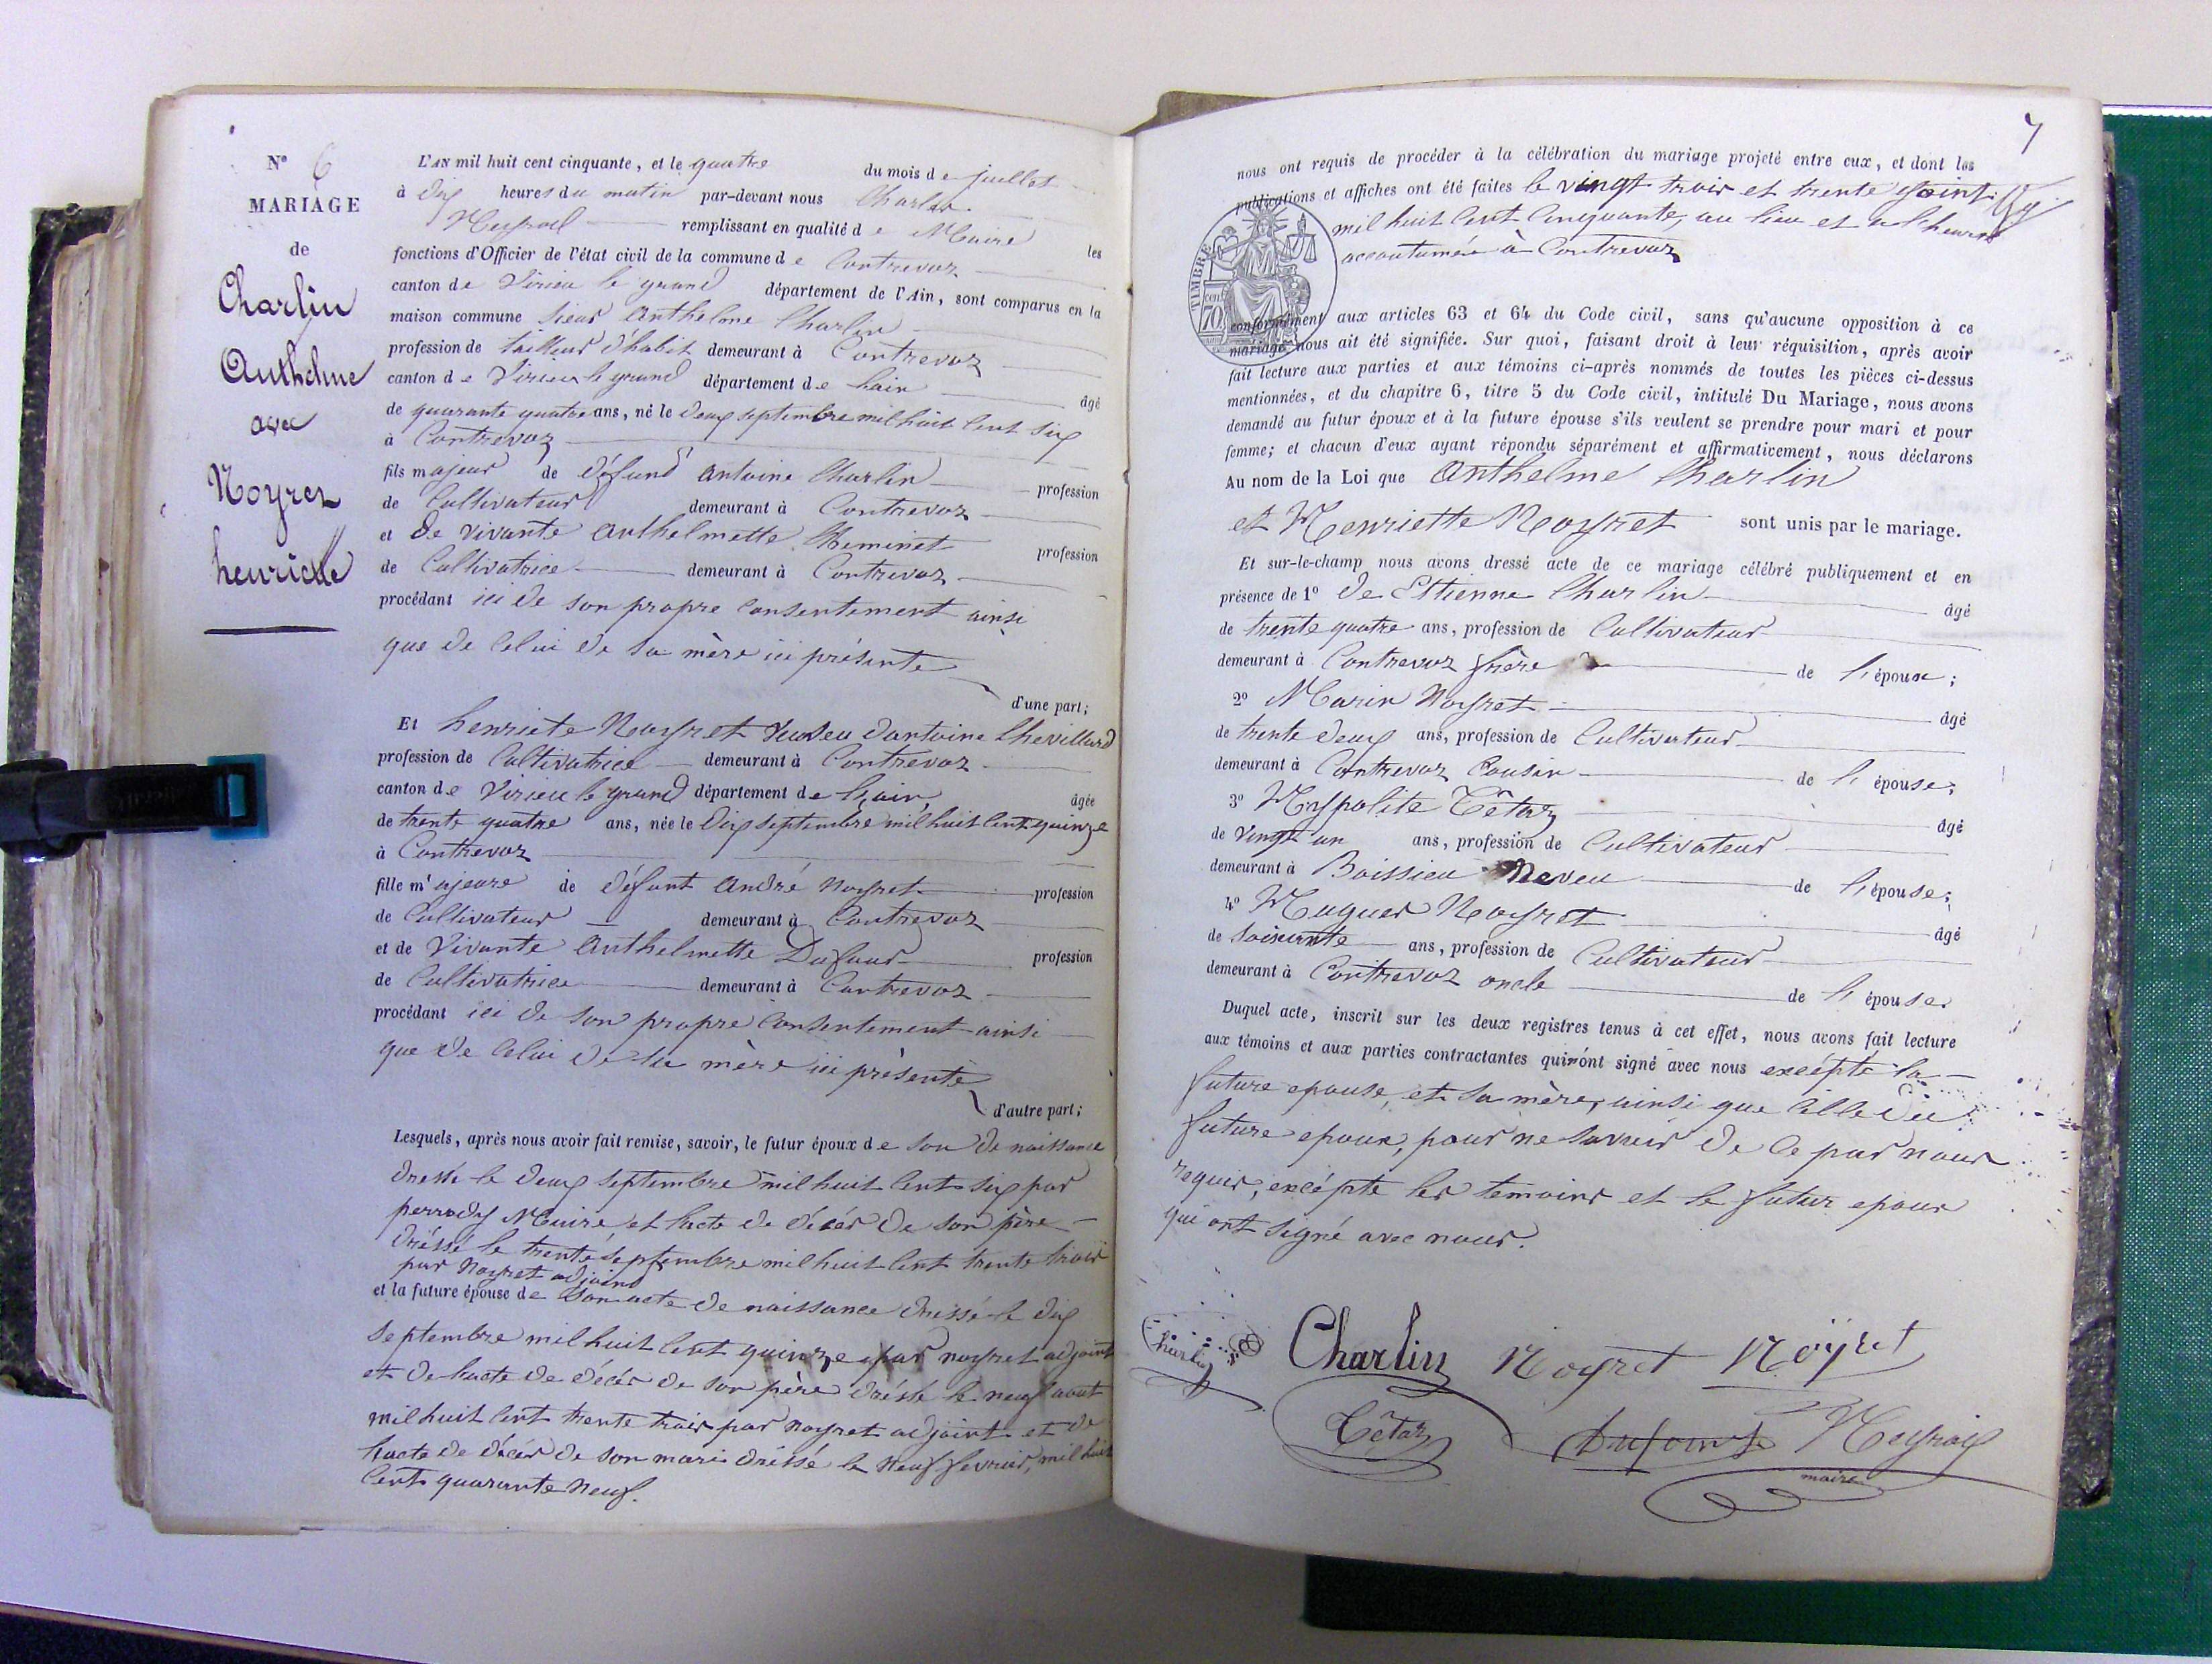 N° 6
MARIAGE
de
Charlin
Anthelme
avec
Noyret
henriette
L'AN mil huit cent cinquante, et le quatre du mois de juillet
à dix heures du matin par-devant nous Charles
remplissant en qualité de Maire les
fonctions d'Officier de l'état civil de la commune de Contrevoz
canton de Virieu le grand département de l'Ain, sont comparus en la
maison commune sieur Anthelme Charlin
profession de tailleur d'habit demeurant à Contrevoz
canton de Virieu le grand département de lain âgé
de quarante quatre ans, né le deux septembre mil huit cent six
à Contrevoz
fils majeur de défund antoine Charlin profession
de Cultivateur demeurant à Contrevoz
et de vivante Anthelmette profession
de Cultivatrice demeurant à Contrevoz
procédant ici de son propre consentement ainsi
que de celui de sa mère ici présente
d'une part;
Et henriete Noyret veuveu dantoine Chevillard
profession de Cultivatrice demeurant à Contrevoz
canton de Virieu le grand département de lain âgée
de trente quatre ans, née le dix septembre mil huit cent quinze
à Contrevoz
fille majeure de défunt André Noyret profession
de Cultivateur demeurant à Contrevoz
et de Vivante Anthelmette Dufour profession
de Cultivatrice demeurant à Contrevoz
procédant ici de son propre consentement ainsi
que de celui de sa mère ici présente
d'autre part;
Lesquels, après nous avoir fait remise, savoir, le futur époux de son de naissance
dressé le deux septembre mil huit cent six par
perrody Maire, et lacte de décés de son père
dréssé le trente septembre mil huit cent trente trois
par Noyret adjoint
et la future épouse de son acte de naissance dréssé le dix
septembre mil huit cent quinze par noyret adjoint
et de lacte de décés de son père dréssé le neuf aout
mil huit cent trente trois par noyret adjoint et de
lacte de décés de son mari dréssé le neuf fevrier, mil huit
cent quarante neuf.
7
nous ont requis de procéder à la célébration du mariage projeté entre eux, et dont les
publications et affiches ont été faites le vingt trois et trente Joint
mil huit cent cinquante, au lieu et a l heure
accoutumée à Contrevoz
TIMBRE
70 cent
conformément aux articles 63 et 64 du Code civil, sans qu'aucune opposition à ce
mariage nous ait été signifiée. Sur quoi, faisant droit à leur réquisition, après avoir
fait lecture aux parties et aux témoins ci-après nommés de toutes les pièces ci-dessus
mentionnées, et du chapitre 6, titre 5 du Code civil, intitulé Du Mariage, nous avons
demandé au futur époux et à la future épouse s'ils veulent se prendre pour mari et pour
femme; et chacun d'eux ayant répondu séparément et affirmativement, nous déclarons
Au nom de la Loi que Anthelme Charlin
et Henriette Noyret sont unis par le mariage.
Et sur-le-champ nous avons dressé acte de ce mariage célébré publiquement et en
présence de 1° de Ettienne Charlin âgé
de trente quatre ans, profession de Cultivateur
demeurant à Contrevoz frère de l'époux;
2° Marin Noyret âgé
de trente deux ans, profession de Cultivateur
demeurant à Contrevoz Cousin de l'épouse;
3° Hypolite Têtaz âgé
de vingt un ans, profession de Cultivateur
demeurant à Boissieu Neveu de l'épouse;
4° Hugues Noyret âgé
de soixante ans, profession de Cultivateur
demeurant à Contrevoz oncle de l'épouse.
Duquel acte, inscrit sur les deux registres tenus à cet effet, nous avons fait lecture
aux témoins et aux parties contractantes qui ont signé avec nous excépté la
future epouse, et sa mère, ainsi que celle du
future epoux, pour ne savoir de ce par nous
requis, excépte les temoins et le futur epoux
qui ont signé avec nous.
Charlin
Charlin Noyret Noÿret
Têtaz Dufour
maire